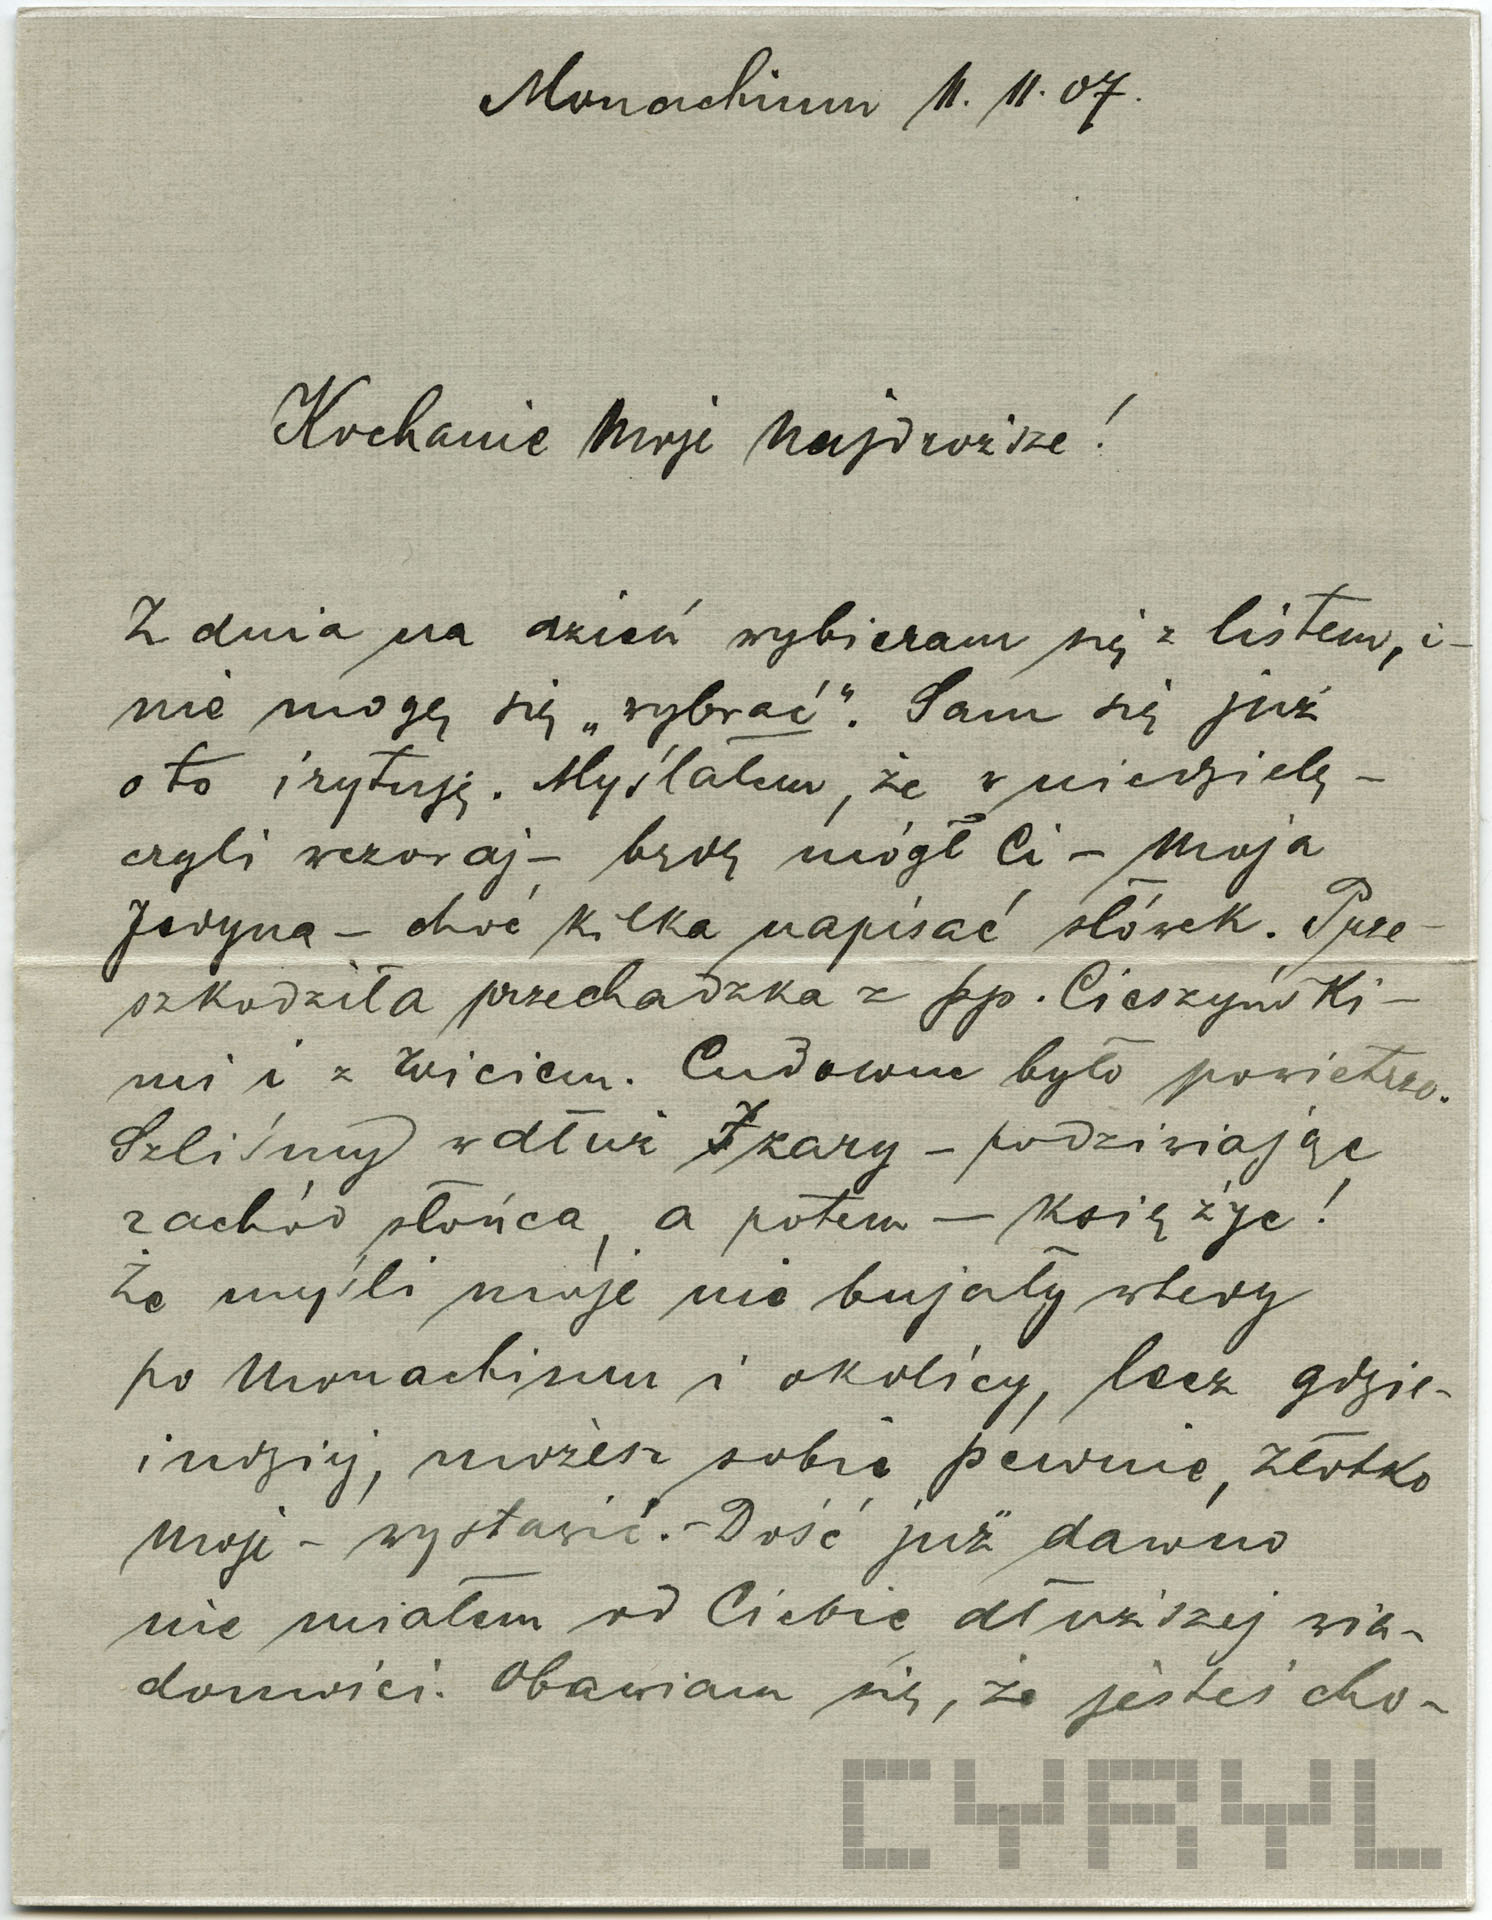 Monachium 11. 11. 07.
Kochanie Moje Najdroższe!
Z dnia na dzień wybieram się z listem, i –
nie mogę się „wybrać". Sam się już
o to irytuję. Myślałem, że w niedzielę –
czyli wczoraj – będę mógł Ci – Moja
Jedyna – choć kilka napisać słówek. Prze-
szkodziła przechadzka z pp. Cieszyński-
mi i z Wiciem. Cudowne było powietrze.
Szliśmy wdłuż Izary – podziwiając
zachód słońca, a potem – księżyc!
Że myśli moje nie bujały wtedy
po Monachium i okolicy, lecz gdzie-
indziej, możesz sobie pewnie, Złotko
Moje – wystawić. – Dość już dawno
nie miałem od Ciebie dłuższej wia-
domości. Obawiam się, że jesteś cho-
CYRYL